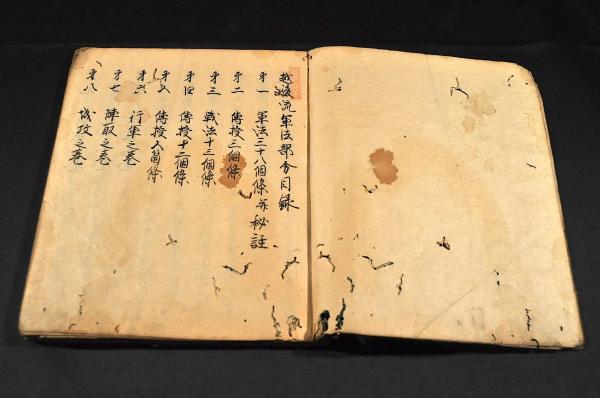 越後流軍法部分目録
㐧一 軍法三十八個條并秘註
㐧二 傳授三個條
㐧三 戦法十三個條
㐧四 傳授十二個條
㐧五 傳授八箇條
㐧六 行軍之巻
㐧七 陣取之巻
㐧八 城攻之巻